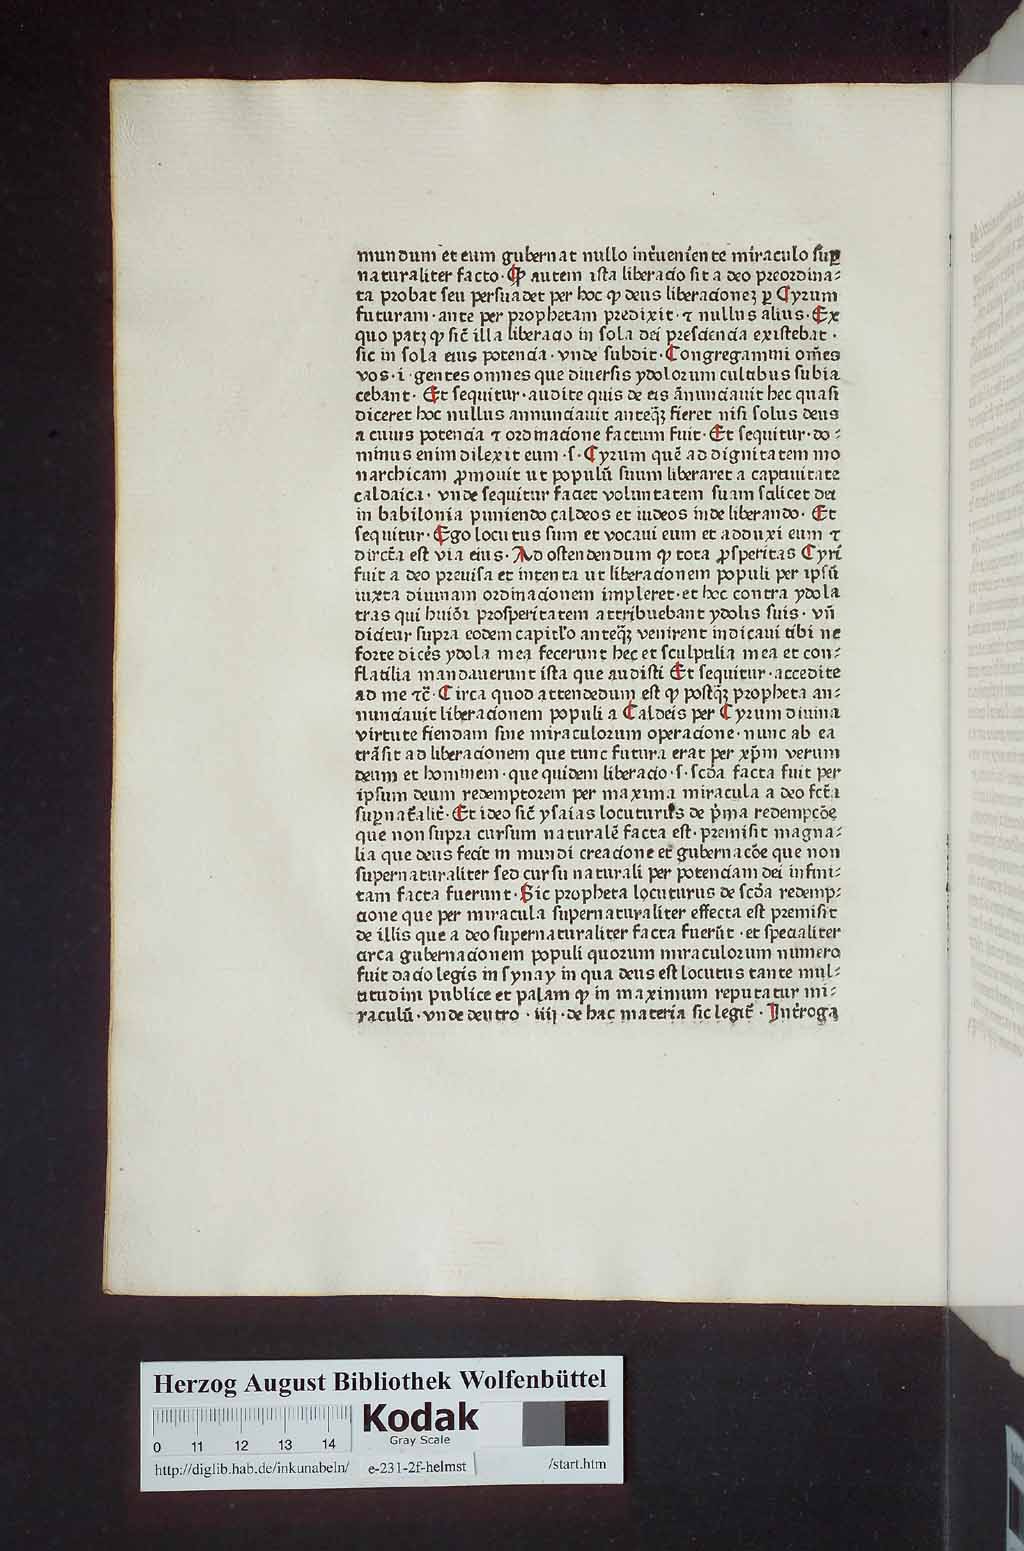 mundum et eum gubernat nullo int̉ueniente miraculo suꝑ
naturaliter facto· Ꝙ autem ista liberacio sit a deo preordina⸗
ta probat seu persuadet per hoc ꝙ deus liberacioneȝ ꝑ Cyrum
futuram · ante per prophetam predixit · ⁊ nullus alius · Ex
quo patȝ ꝙ sic̄ illa liberacio in sola dei presciencia existebat ·
sic in sola eius potencia · vnde subdit · Congregamini om̄es
vos · i · gentes omnes que diuersis ydolorum cultibus subia
cebant · Et sequitur · audite quis de eis ānunciauit hec quasi
diceret hoc nullus annunciauit anteq̄ȝ fieret nisi solus deus
a cuius potencia ⁊ ordinacione factum fuit · Et sequitur · do⸗
minus enim dilexit eum · s · Cyrum quē ad dignitatem mo
narchicam ꝓmouit ut populū suum liberaret a captiuitate
caldaica · vnde sequitur faciet voluntatem suam scilicet dei
in babilonia puniendo caldeos et iudeos inde liberando · Et
sequitur · Ego locutus sum et vocaui eum et adduxi eum ⁊
dirc̄ta est via eius · Ad ostendendum ꝙ tota ꝓsperitas Cyri
fuit a deo preuisa et intenta ut liberacionem populi per ipsū
iuxta diuinam ordinacionem impleret · et hoc contra ydola
tras qui huiōi prosperitatem attribuebant ydolis suis · vn̄
dicitur supra eodem capitl̓o anteq̄ȝ venirent indicaui tibi ne
forte dicēs ydola mea fecerunt hec et sculptilia mea et con⸗
flatilia mandauerunt ista que audisti Et sequitur · accedite
ad me ⁊c̄ · Circa quod attendedum est ꝙ postq̄ȝ propheta an⸗
nunciauit liberacionem populi a Caldeis per Cyrum diuina
virtute fiendam sine miraculorum operacione · nunc ab ea
trāsit ad liberacionem que tunc futura erat per xp̄m verum
deum et hominem · que quidem liberacio · s · scd̄a facta fuit per
ipsum deum redemptorem per maxima miracula a deo fc̄ta
suꝑnat̉alit̉ · Et ideo sic̄ ysaias locuturus de p̓ma redempcōe
que non supra cursum naturalē facta est · premisit magna⸗
lia que deus fecit in mundi creacione et gubernacōe que non
supernaturaliter sed cursu naturali per potenciam dei infini⸗
tam facta fuerunt · Sic propheta locuturus de scd̄a redemp⸗
cione que per miracula supernaturaliter effecta est premisit
de illis que a deo supernaturaliter facta fuerūt · et specialiter
circa gubernacionem populi quorum miraculorum numero
fuit dacio legis in synay in qua deus est locutus tante mul⸗
titudini publice et palam ꝙ in maximum reputatur mi⸗
raculū · vnde deutro · iiij · de hac materia sic legit̉ · Int̉roga
Herzog August Bibliothek Wolfenbüttel
Kodak
Gray Scale
0 11 12 13 14
http://diglib.hab.de/inkunabeln/ e-231-2f-helmst /start.htm